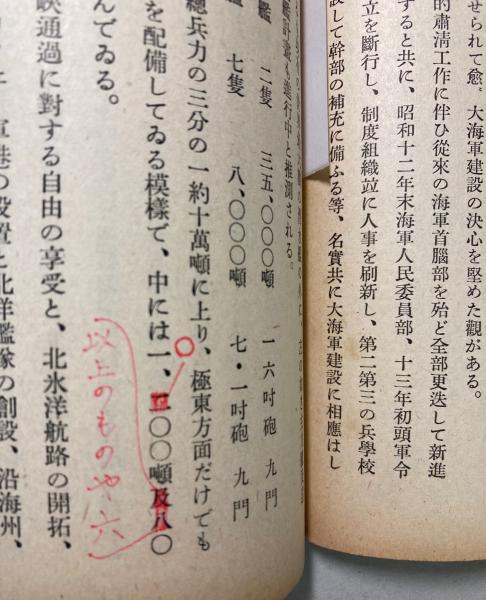 せられて愈〻大海軍建設の決心を堅めた觀がある。
的肅淸工作に伴ひ從來の海軍首腦部を殆ど全部更迭して新進
すると共に、昭和十二年末海軍人民委員部、十三年初頭軍令
立を斷行し、制度組織竝に人事を刷新し、第二第三の兵學校
設して幹部の補充に備ふる等、名實共に大海軍建設に相應はし
計畫も進行中と推測される。
艦 二隻 三五、〇〇〇噸 一六吋砲 九門
七隻 八、〇〇〇噸 七・一吋砲 九門
總兵力の三分の一約十萬噸に上り、極東方面だけでも
を配備してゐる模樣で、中には一、 〇〇噸及八〇
以上のものや六
んでゐる。
峽通過に對する自由の享受と、北氷洋航路の開拓、
軍港の設置と北洋艦隊の創設、沿海州、